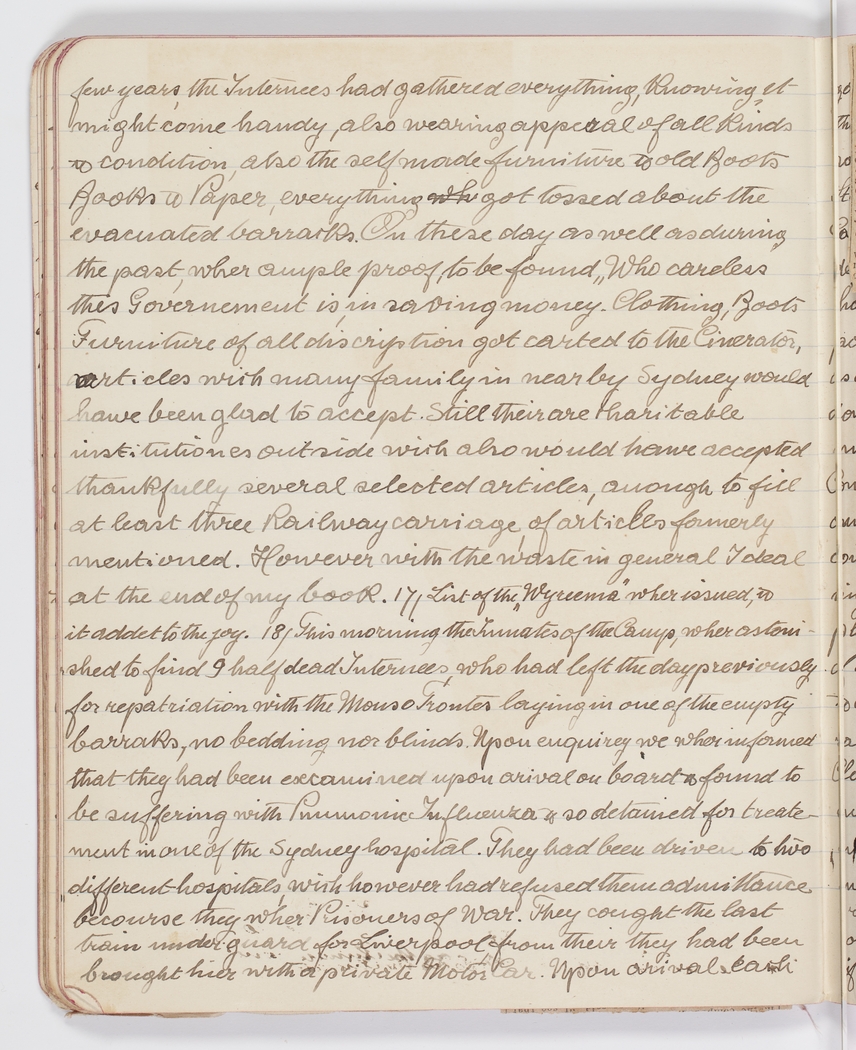 few years, the Internees had gathered everything, Knowing it
might come handy, also wearing apperal of all Kinds
& condition, also the self made furniture & old Boots
Books & Paper, everything whi got tossed about the
evacuated barracks. On these day as well as during
the past, wher ample proof, to be found, "Who careless"
this Governement is, in saving money. Clothing, Boots
Furniture of all discription got carted to the Cinerator,
articles wich many family in near by Sydney would
hawe been glad to accept. Still their are tharitable
institutiones outside wich also would hawe accepted
thankfully several selected articles, anough to fill
at least three Railway carriage, of articles formerly
mentioned. However with the waste in general I deal
at the end of my book. 17/ List of the "Wyreema" wher issued, &
it addet to the joy. 18/ This morning the Inmates of the Camp, wher astoni-
shed to find 9 half dead Internees, who had left the day previously
for repatriation with the Mouso Frontes laying in one of the empty
barraks, no bedding nor blinds. Upon enquirey we wher informed
that they had been excamined upon arival on board & found to
be suffering with Pnumonic Influenza & so detained for treate-
ment in one of the Sydney hospital. They had been driven to two
different hospitals, wich however had refused them admittance
becourse they wher Prisoners of War. They cought the last
train under guard for Liverpool from their they had been
brought hier with a private Motor Car. Upon arival